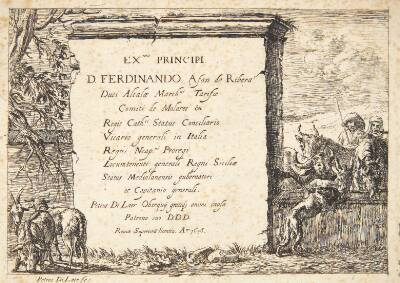 EX.mo PRINCIPI
D. FERDINANDO Afan de Ribera
Duci Alcalæ March.ni Tarifæ
Comiti de Molares &
Regis Cath.ci Status Conciliario
Vicario generali in Italia
Regni Neap.ni Proregi
Locumtenenti generali Regni Siciliæ
Status Mediolanensis gubernatori
et Capitanio generali.
Petrus Di Laer
Patrono suo D.D.D.
Romæ Superiorū licentia. A.no
Petrus Di Laer fe.